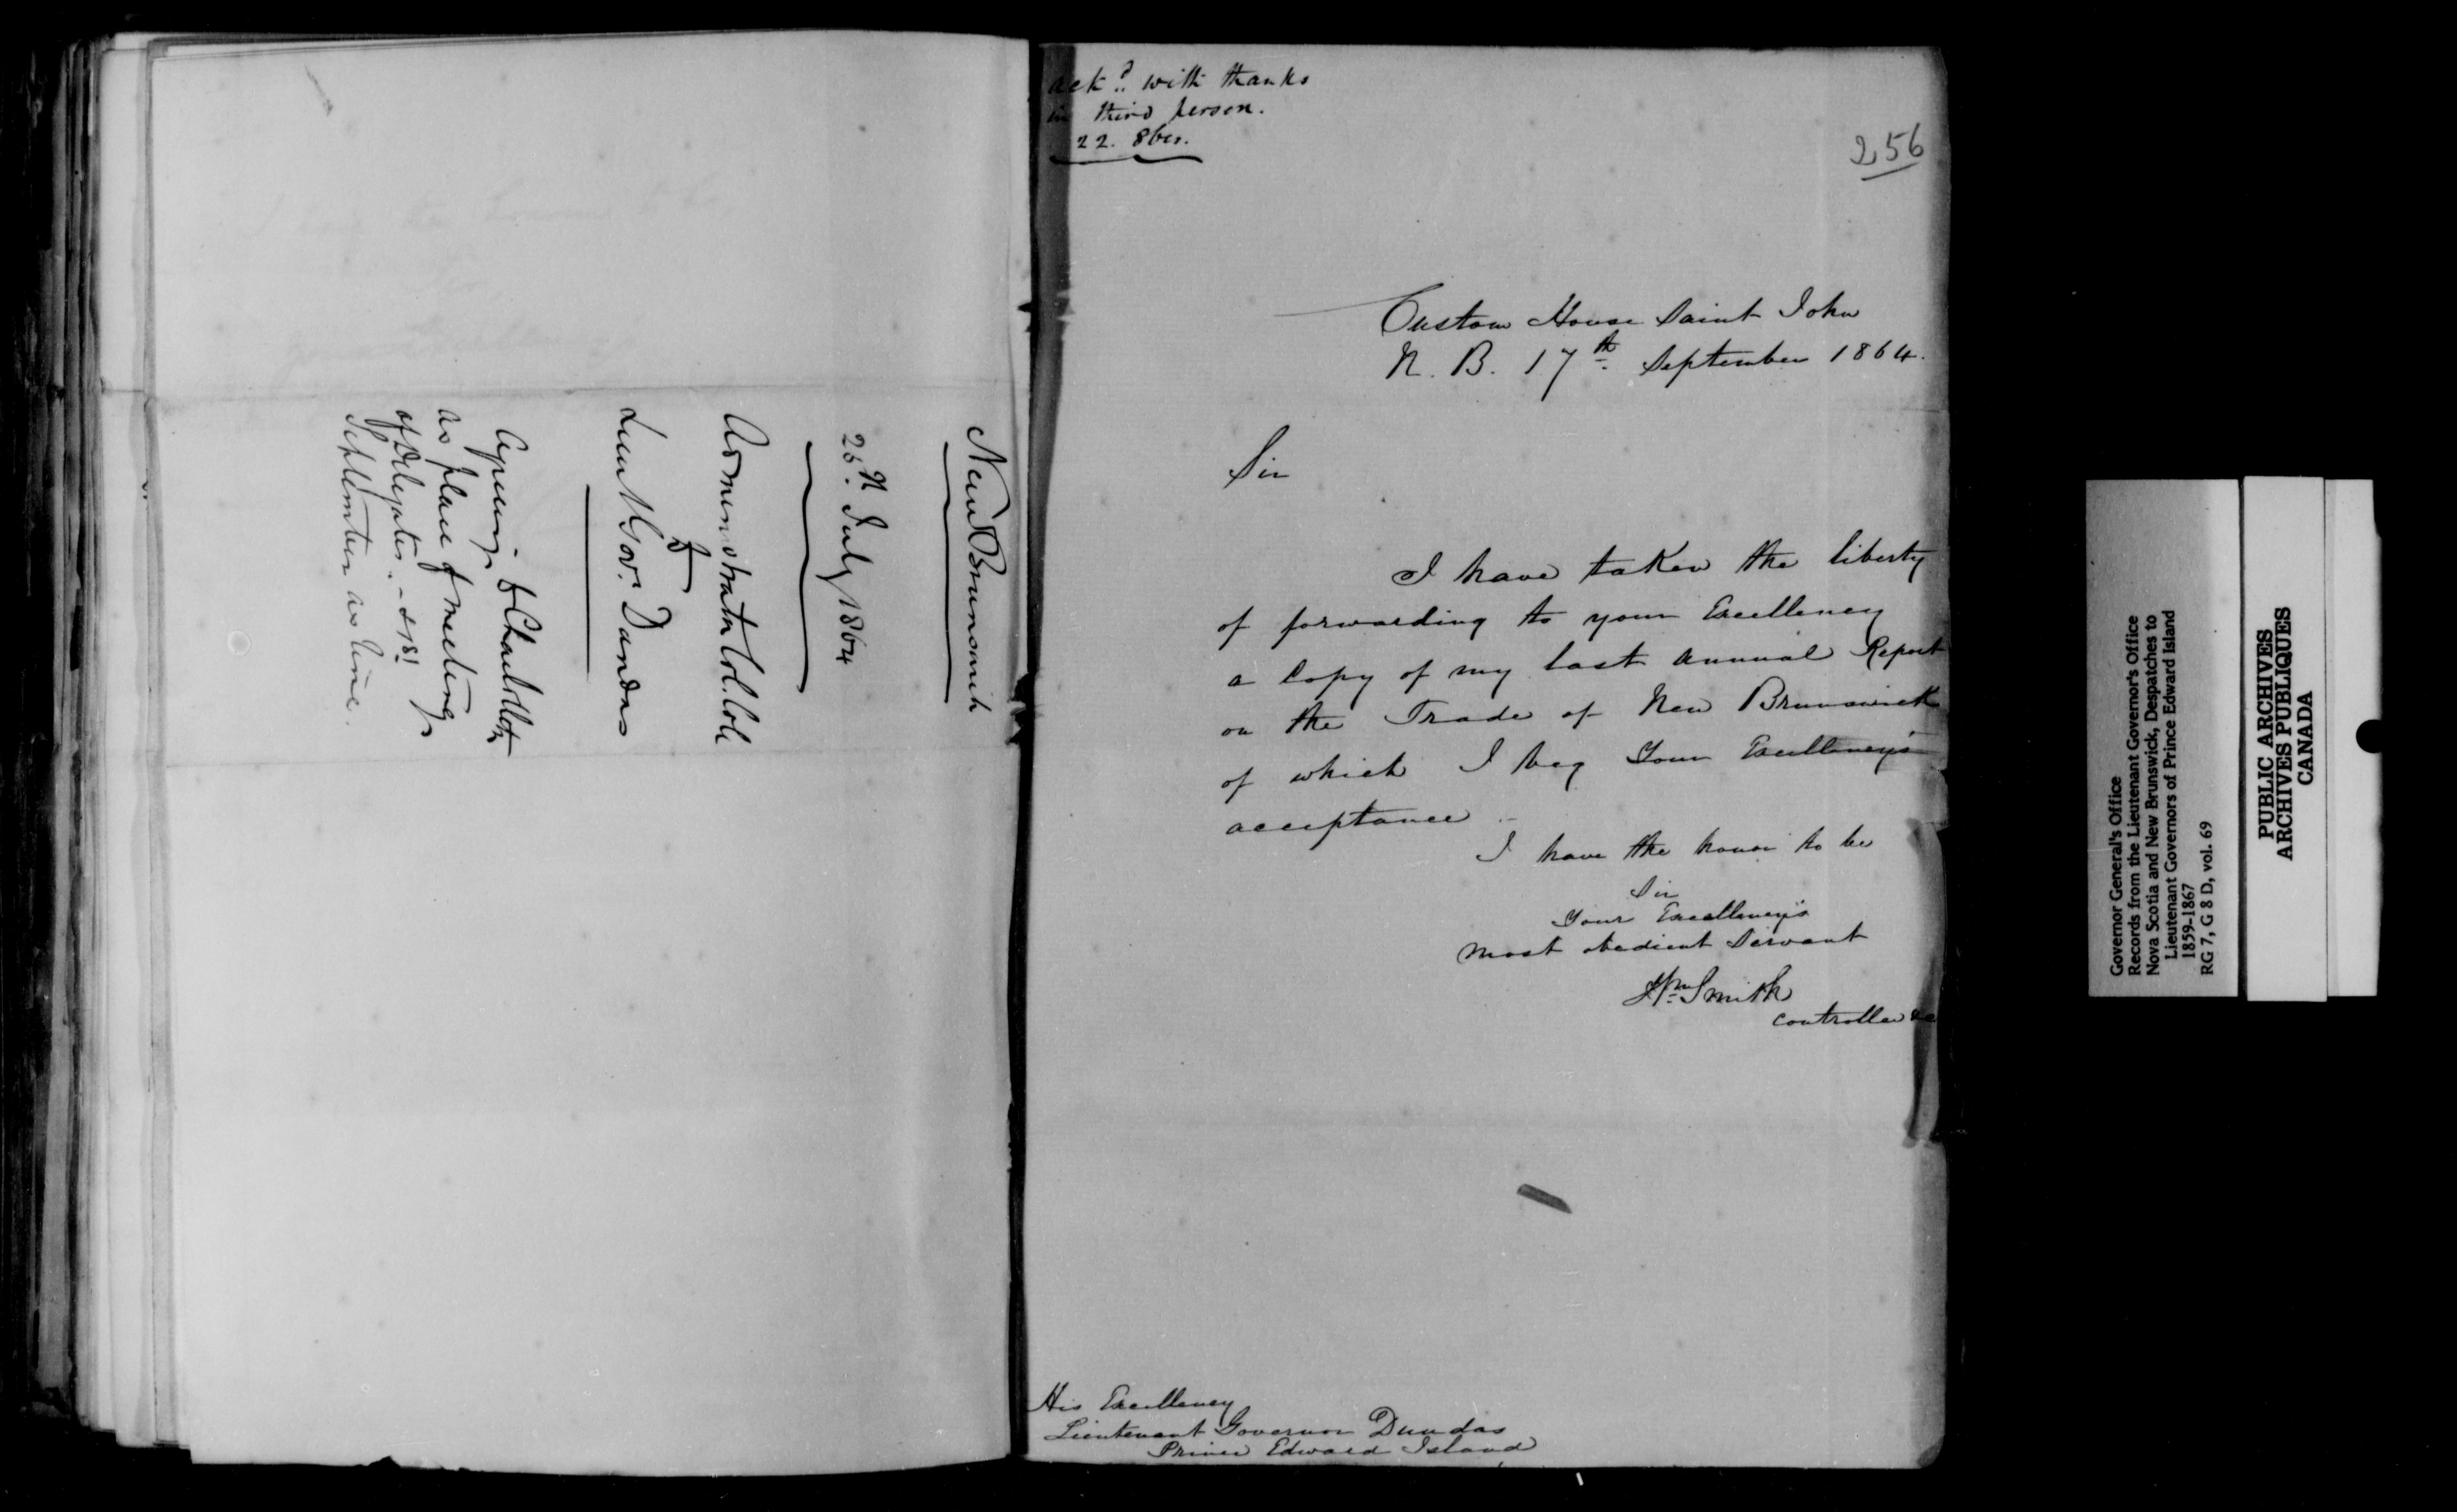 New Brunswick
25th July 1864
Administrator Col. Cole
to
Lieut Govr. Dundas
Agreeing to Charlottetn
as place of meeting
of Delegates - & 1st
September as time.
ackd. with thanks
in third person.
22. 8ber.
256
Custom House Saint John
N. B. 17th September 1864.
Sir
I have taken the liberty
of forwarding to your Excellency
a Copy of my last Annual Report
on the Trade of New Brunswick
of which I beg Your Excellency's
acceptance -
I have the honor to be
Sir
Your Excellency's
most obedient Servant
Wm Smith
Controller &c
His Excellency
Lieutenant Governor Dundas
Prince Edward Island
Governor General's Office
Records from the Lieutenant Governor's Office
Nova Scotia and New Brunswick, Despatches to
Lieutenant Governors of Prince Edward Island
1859-1867
RG 7, G 8 D, vol. 69
PUBLIC ARCHIVES
ARCHIVES PUBLIQUES
CANADA